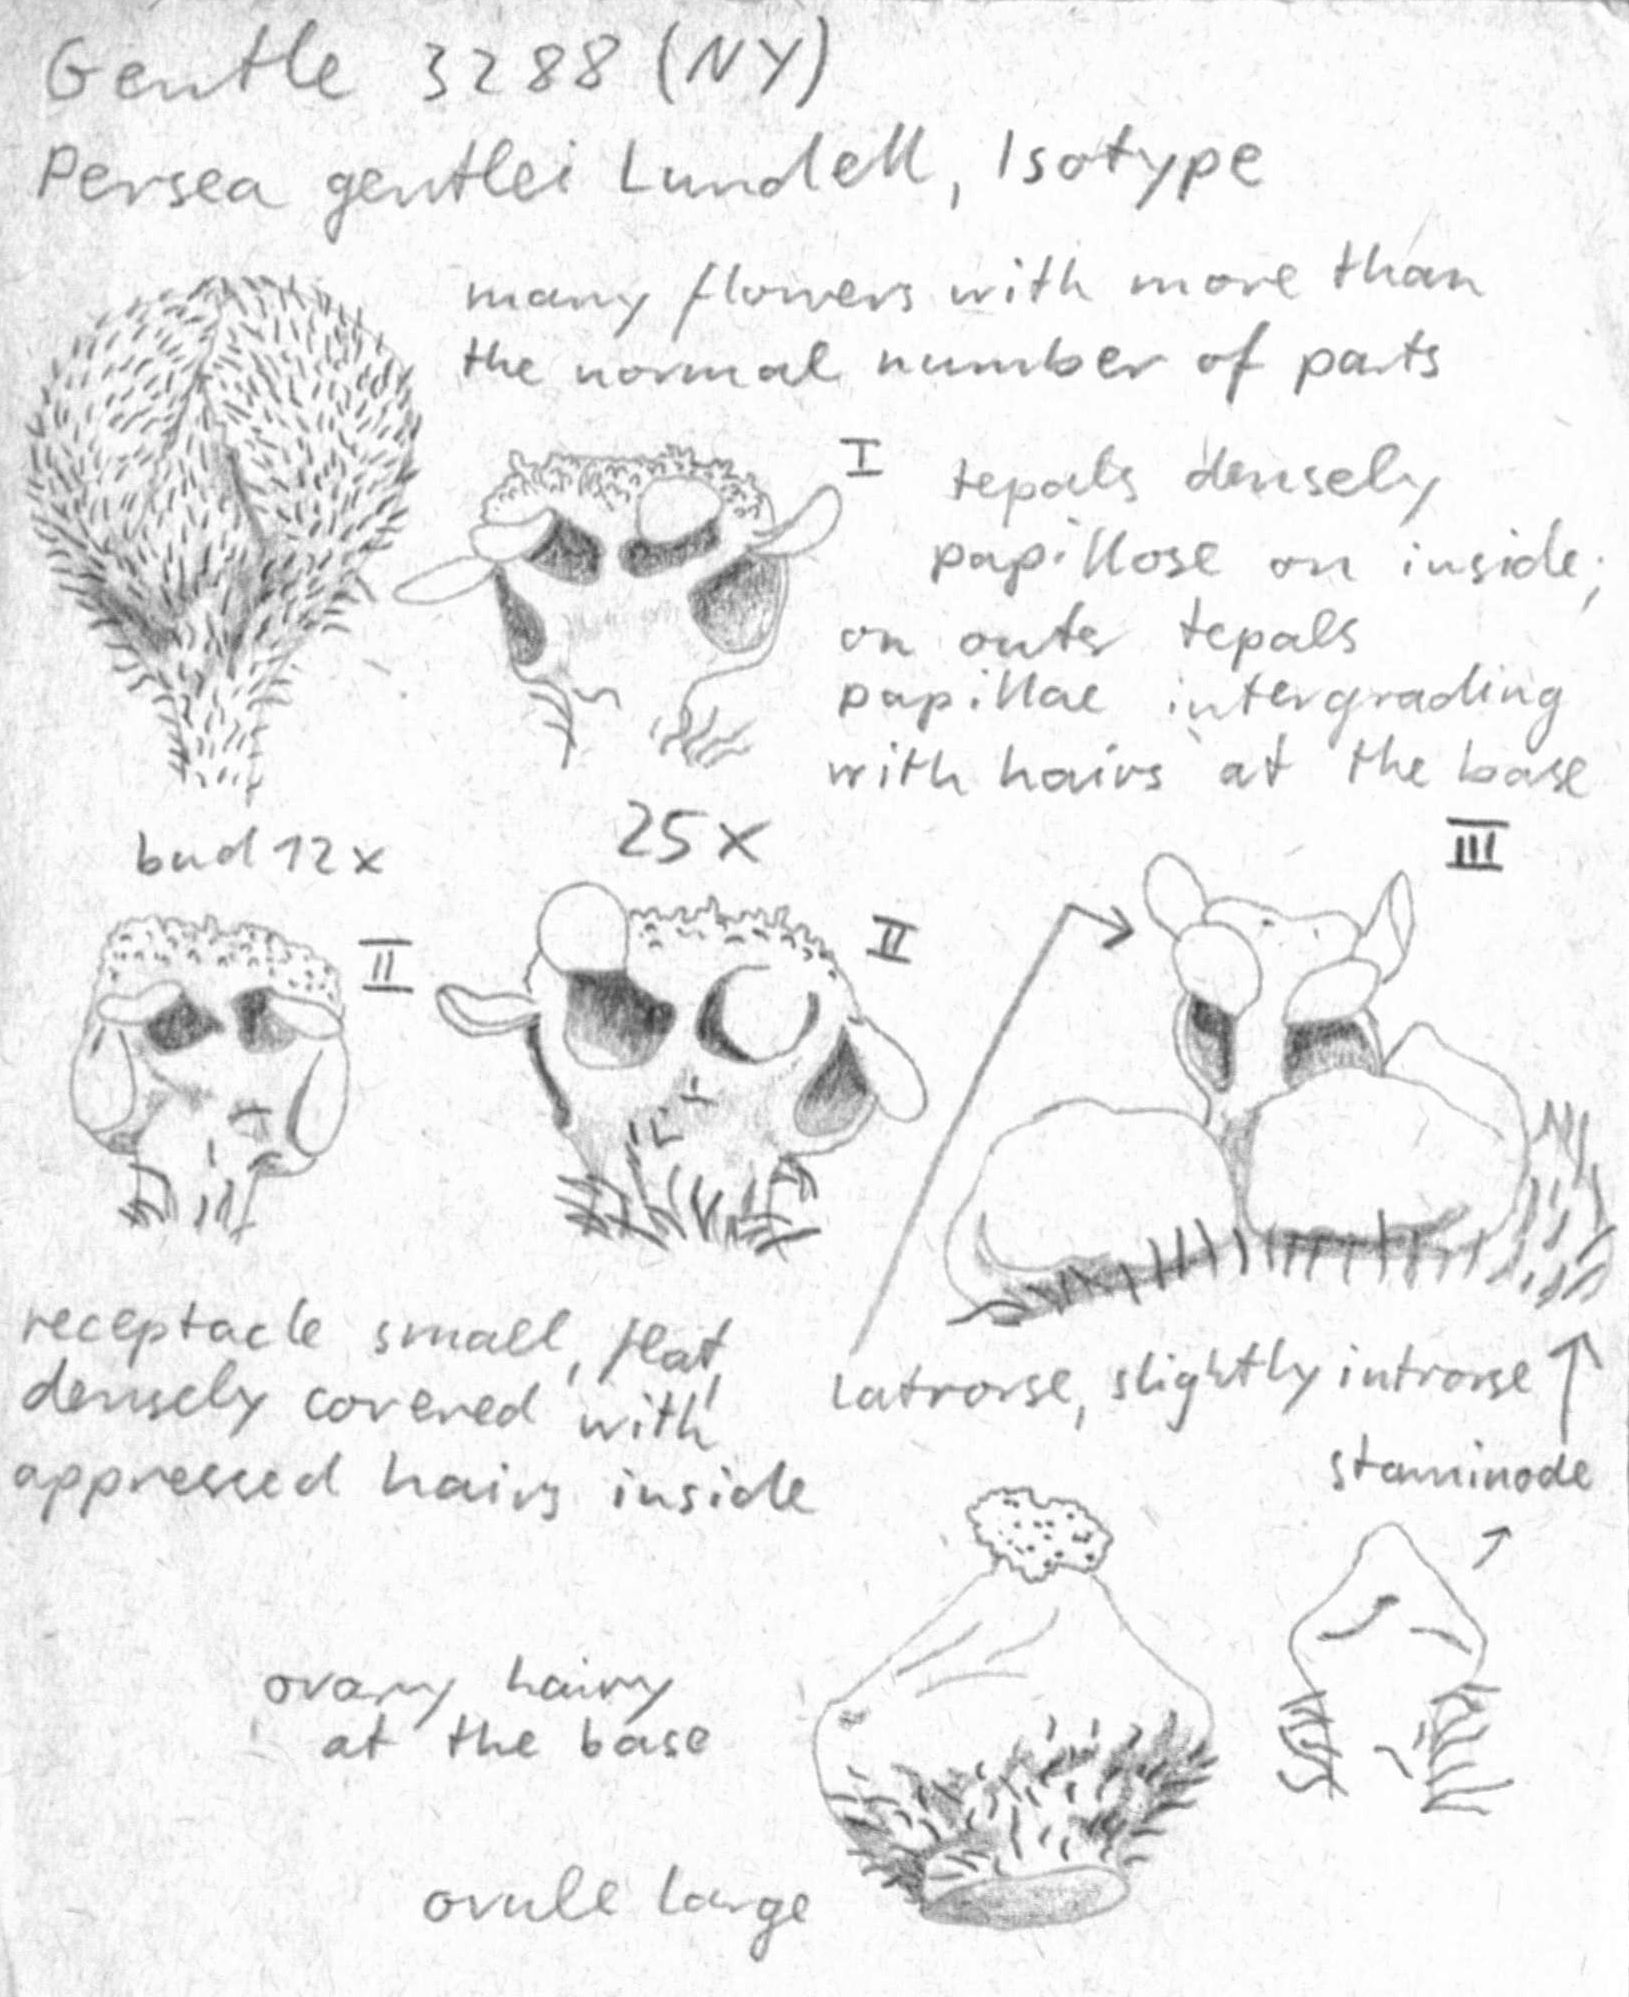 Gentle 3288 (NY)
Persea gentlei Lundell, Isotype
many flowers with more than
the normal number of parts
I
tepals densely
papillose on inside;
on outer tepals
papillae intergrading
with hairs at the base
bud 12x
25x
III
II
II
receptacle small, flat,
densely covered with
appressed hairs inside
latrorse, slightly introrse
staminode
ovary hairy
at the base
ovule large